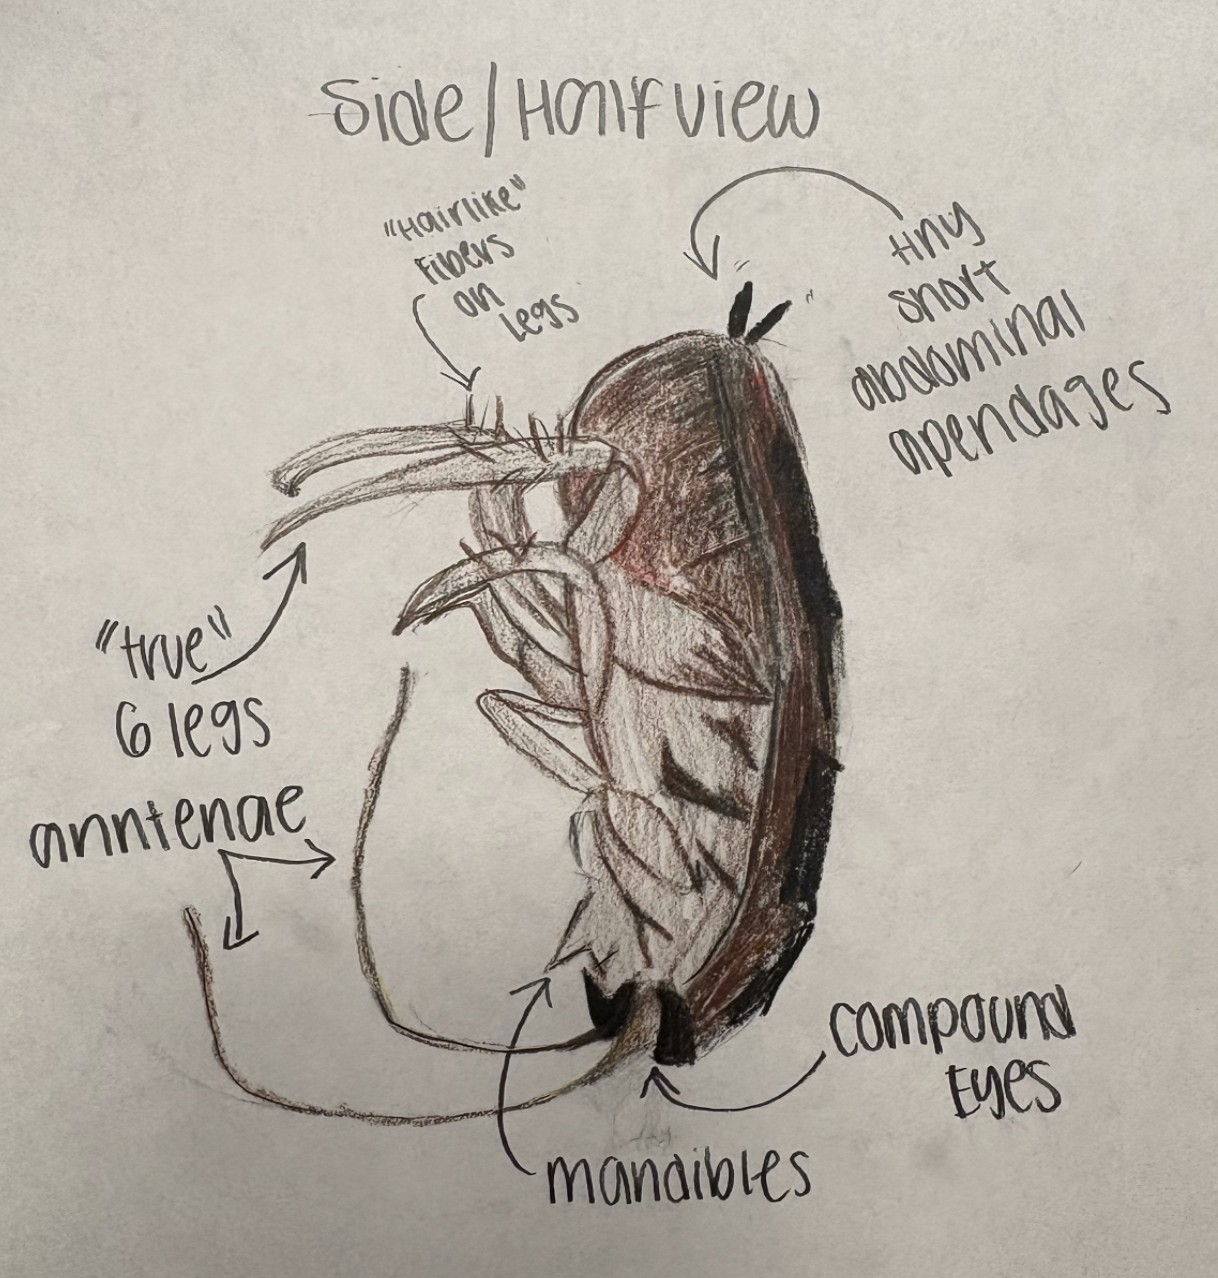 Side/Halfview
"Hairlike"
Fibers
on
Legs
tiny
short
abdominal
apendages
"true"
6 legs
anntenae
compound
Eyes
mandibles